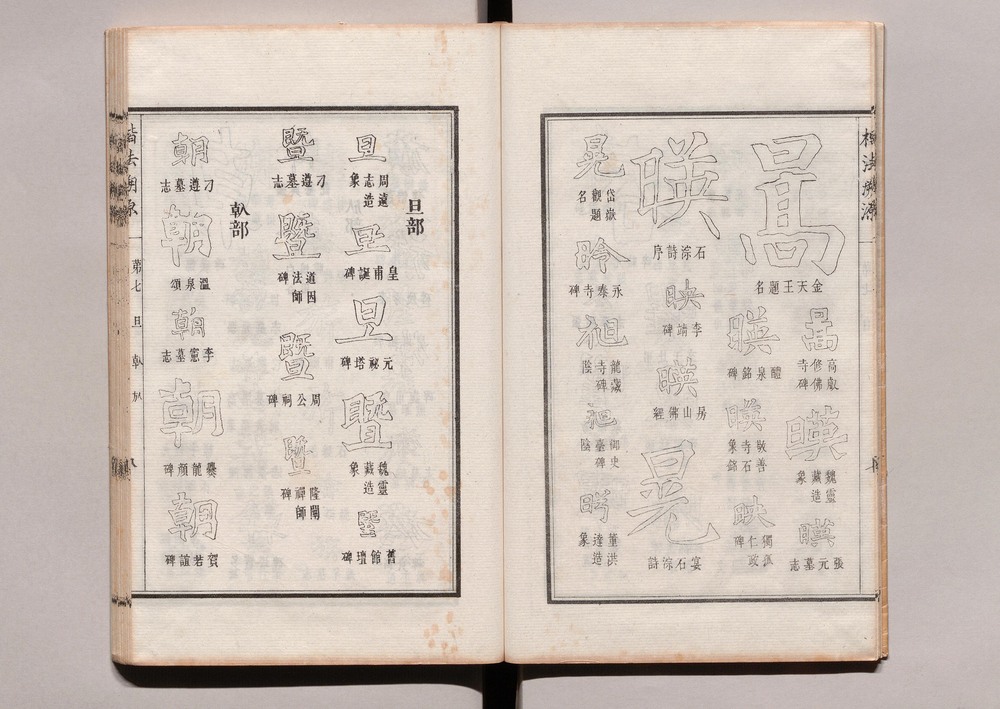 楷法溯源
暠
金天王題名
暠
高叡修佛寺碑
暎
魏靈藏造象
暎
張元墓志
暎
醴泉銘碑
暎
敬善寺石象銘
映
獨孤仁政碑
暎
石淙詩序
映
李靖碑
暎
房山佛經
晃
宴石淙詩
晃
岱嶽觀題名
昤
永泰寺碑
旭
龍藏寺碑陰
旭
御史臺碑陰
董洪達造象
旦部
旦
周遠志造象
旦
皇甫誕碑
旦
元秘塔碑
暨
魏靈藏造象
暨
舊館壇碑
暨
刁遵墓志
暨
道因法師碑
暨
周公祠碑
暨
隆闡禪師碑
倝部
朝
刁遵墓志
朝
溫泉頌
朝
李憲墓志
朝
爨龍顏碑
朝
賀若誼碑
楷法溯源 第七 旦 倝 㫃 八